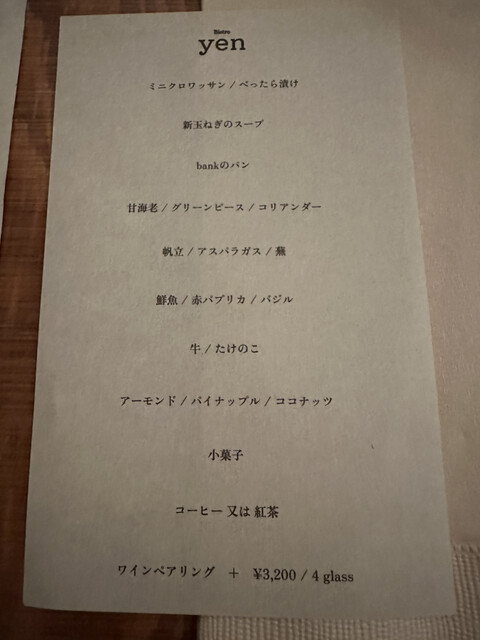 Bistro
yen
ミニクロワッサン / べったら漬け
新玉ねぎのスープ
bankのパン
甘海老 / グリーンピース / コリアンダー
帆立 / アスパラガス / 蕪
鮮魚 / 赤パプリカ / バジル
牛 / たけのこ
アーモンド / パイナップル / ココナッツ
小菓子
コーヒー 又は 紅茶
ワインペアリング + ¥3,200 / 4 glass